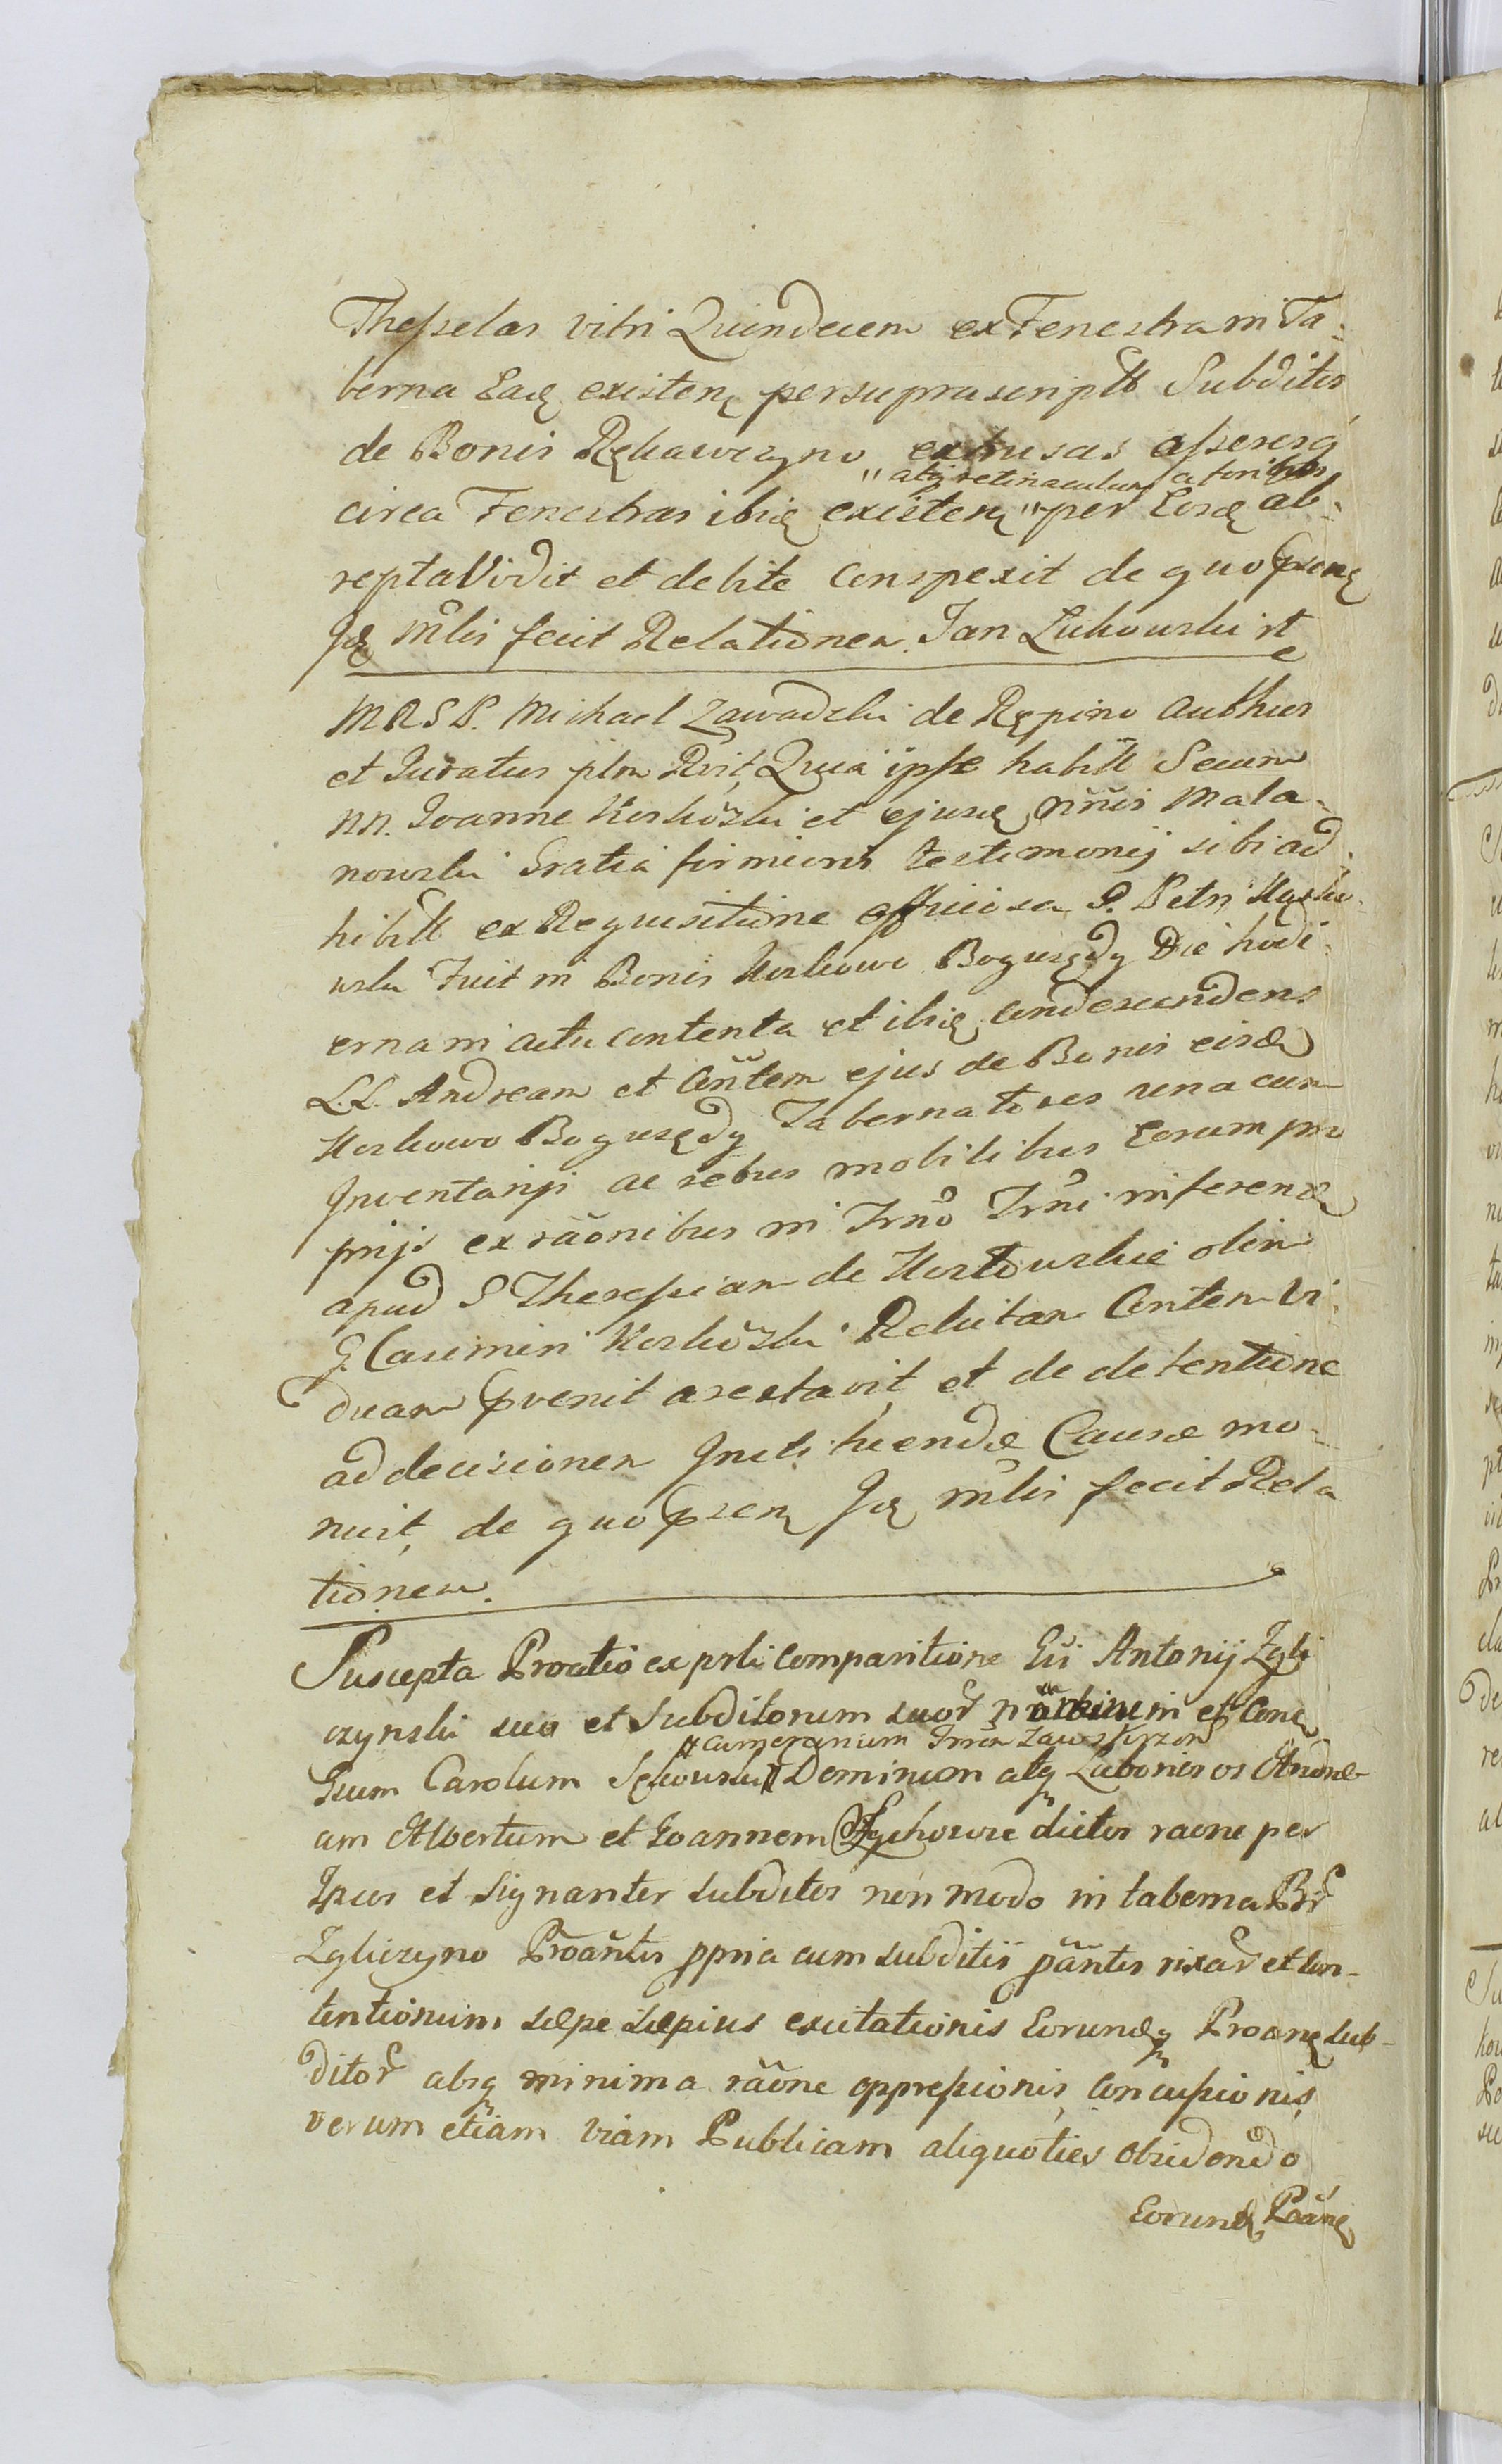 Theſselas vitri Quindecem ex Fenestra in Ta:
berna Eadę existenę per supra scriptt Subditos
de Bonis Rękawczyno extrusas aſseresq
"atq retinaculum a foribus
circa Fenestras ibidę existenę " per Eosdę ab:
repta Vidit et debite Conspexit de quo pñsenę
Jdę mlis fecit Relationem. Jan Lukowski st
MRSP. Michael Zawadzki de Rępino Authus
et Juratus plm Rvit, Quia ipſse habitt Secum
NN. Joanne Koskowski et ejusdę nñis Mala:
nowski Gratia firmioris testimonij sibi ad:
hibitt ex Requisitione officiosa G. Petri Kosko:
wski Fuit in Bonis Koskowo Bogusędy Die hodi:
erna in actu contenta et ibidę condescendens
LL. Andream et Cõntem ejus de Bonis eisdę
Koskowo Bogusędy Tabernatores una cum
Inventarijs ac rebus mobilibus Eorum pro
prijs ex rãonibus in Trno Trni inferendę
apud G Thereſsiam de Kostowskie olim
G. Casimiri Koskowski Relictam Contem Vi:
duam pvenit arestavit, et de detentione
ad decisionem Jnstituendæ Causæ mo:
nuit, de quo pñsenę Jdę mlis fecit Rela
tionem.
Suscepta Proātio ex prsli comparitione Gsi Antonij Zgli
czynski suo et subditorum suor nõmine in et Conę
" Cameranium Trrēn Zawskrzen
Gsum Carolum Sękowski " Dominum atq Laboriosos Andre
am Albertum et Joannem Sychowic dictos raone per
Ipsos et signanter subditos non modo in taberna Br
Zgliczyno Proãntis ppria cum subditis pãntis rixar et con-
tentionum sæpe sæpius excitationis Eorundę Proanę sub-
ditor absq minima rãone oppreſsionis, Concuſsionis,
verum etiam viam Publicam aliquoties obsidendo
Eorundę Pãnę